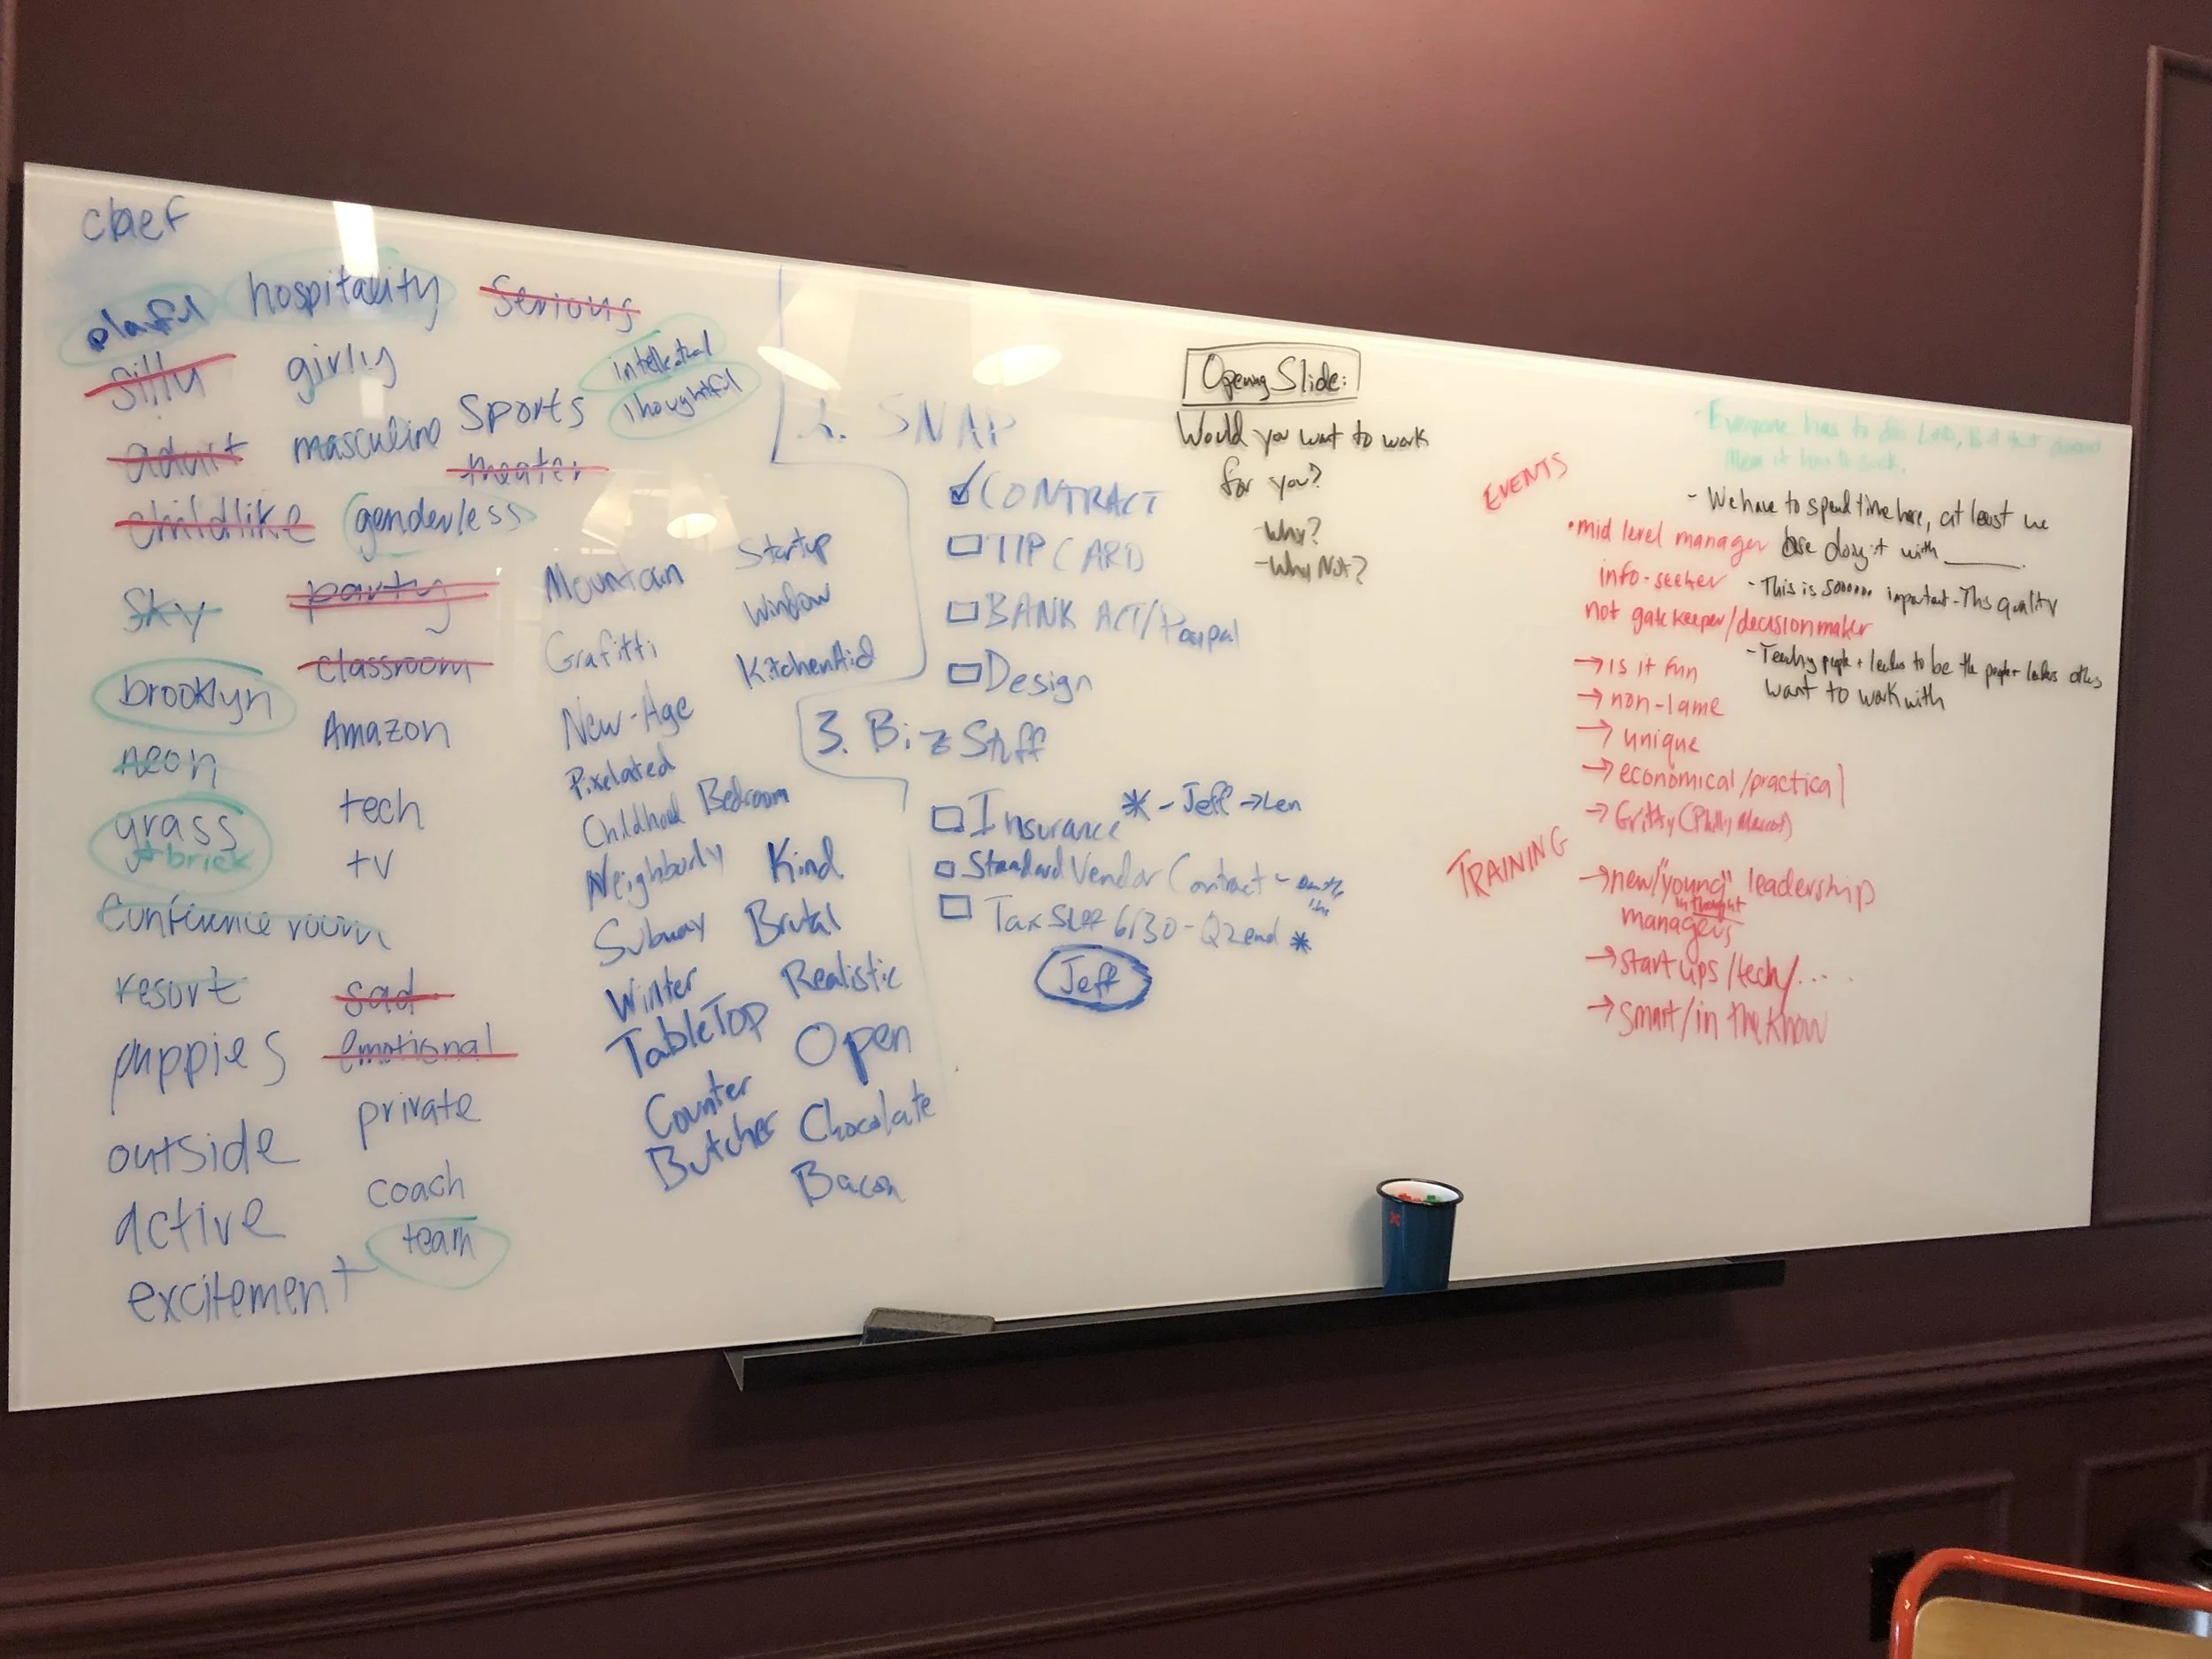 chef
playful hospitality serious
silly girly intellectual
adult masculine sports thoughtful
theater
childlike genderless
sky party
brooklyn classroom
neon Amazon
grass tech
+ brick tv
conference room
resort sad
puppies emotional
outside private
active coach
excitement team
Mountain Startup
Grafitti Window
New-Age KitchenAid
Pixelated
Childhood Bedroom
Neighborly Kind
Subway Brutal
Winter Realistic
TableTop Open
Counter Chocolate
Butcher Bacon
2. SNAP
CONTRACT
TIP CARD
BANK ACT/Paypal
Design
3. Biz Stuff
Insurance * - Jeff → Len
Standard Vendor Contract -
Tax Stuff 6/30 - Q2 end *
Jeff
Opening Slide:
Would you want to work
for you?
- Why?
- Why Not?
- Everyone has to do L+D, But that doesn't
mean it has to suck.
- We have to spend time here, at least we
are doing it with ____.
- This is soooooo important - This quality
- Teaching people + leaders to be the people + leaders others
want to work with
EVENTS
• mid level manager
info-seeker
not gatekeeper/decisionmaker
→ is it fun
→ non-lame
→ unique
→ economical/practical
→ Gritty (Philly Mascot)
TRAINING
→ new/"young" leadership
in thought
managers
→ start ups/tech/...
→ smart/in the know